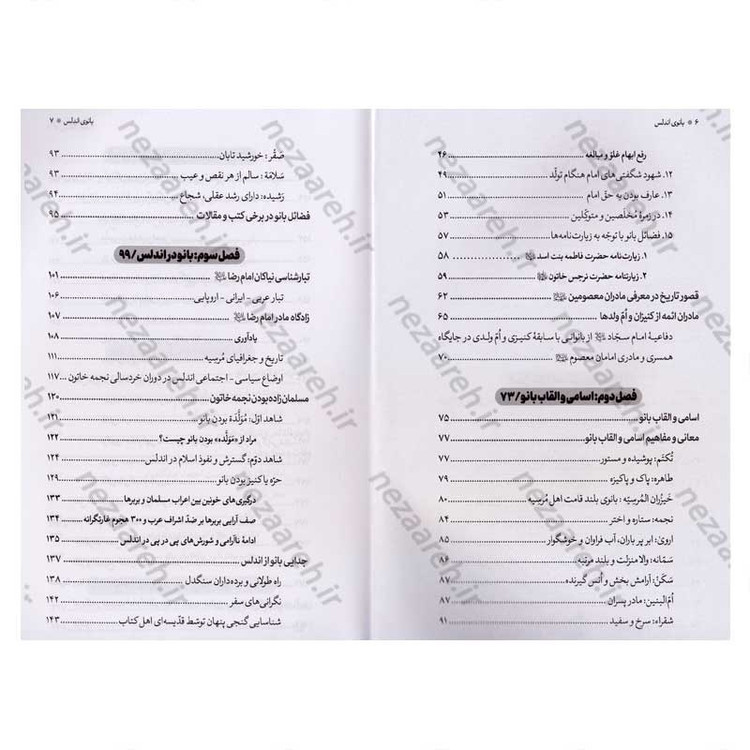 ۶ * بانوی اندلس
رفع ابهام غلوّ و مبالغه ۴۶
۱۲. شهود شگفتی‌های امام هنگام تولّد ۴۹
۱۳. عارف بودن به حقّ امام ۵۱
۱۴. در زمرۀ مُخلَصین و متوکّلین ۵۳
۱۵. فضائل بانو با توجّه به زیارت‌نامه‌ها ۵۷
۱. زیارت‌نامه حضرت فاطمه بنت اسد ۵۸
۲. زیارتنامه حضرت نرجس خاتون ۵۹
قصور تاریخ در معرفی مادران معصومین ۶۲
مادران ائمه از کنیزان و اُمّ ولدها ۶۵
دفاعیۀ امام سجّاد از بانوانی با سابقۀ کنیزی و اُمّ ولدی در جایگاه
همسری و مادری امامان معصوم ۷۰
فصل دوم: اسامی و القاب بانو/ ۷۳
اسامی و القاب بانو ۷۵
معانی و مفاهیم اسامی و القاب بانو ۷۷
تُکتَم: پوشیده و مستور ۷۷
طاهره: پاک و پاکیزه ۷۹
خیزُران المُرسیّه: بانوی بلند قامت اهل مُرسیه ۸۰
نجمه: ستاره و اختر ۸۴
اروی: ابر پر باران، آب فراوان و خوشگوار ۸۵
سَمّانه: والا منزلت و بلند مرتبه ۸۶
سَکَن: آرامش بخش و اُنس گیرنده» ۸۷
اُمّ البنین: مادر پسران ۸۷
شقراء: سرخ و سفید ۹۱
بانوی اندلس * ۷
صَقْر: خورشید تابان ۹۳
سَلامَة: سالم از هر نقص و عیب ۹۳
رَشیده: دارای رشد عقلی، شجاع ۹۴
فضائل بانو در برخی کتب و مقالات ۹۵
فصل سوم: بانو در اندلس / ۹۹
تبارشناسی نیاکان امام رضا ۱۰۱
تبار عربی - ایرانی - اروپایی ۱۰۶
زادگاه مادر امام رضا ۱۰۷
یادآوری ۱۰۸
تاریخ و جغرافیای مُرسیه ۱۱۱
اوضاع سیاسی - اجتماعی اندلس در دوران خردسالی نجمه خاتون ۱۱۷
مسلمان زاده بودن نجمه خاتون ۱۲۰
شاهد اوّل: مُوَلَّدة بودن بانو ۱۲۱
مراد از «مَوَلَّده» بودن بانو چیست؟ ۱۲۲
شاهد دوّم: گسترش و نفوذ اسلام در اندلس ۱۲۴
حرّه یا کنیز بودن بانو ۱۲۹
درگیری‌های خونین بین اعراب مسلمان و بربرها ۱۳۳
صف آرایی بربرها بر ضدّ اشراف عرب و ۳۰۰ هجوم غارتگرانه ۱۳۴
ادامۀ ناآرامی و شورش‌های پی در پی در اندلس ۱۳۵
جدایی بانو از اندلس ۱۳۷
راه طولانی و برده‌داران سنگدل ۱۳۸
نگرانی‌های سفر ۱۴۲
شناسایی گنجی پنهان توسّط قدّیسه‌ای اهل کتاب ۱۴۳
nezaareh.ir